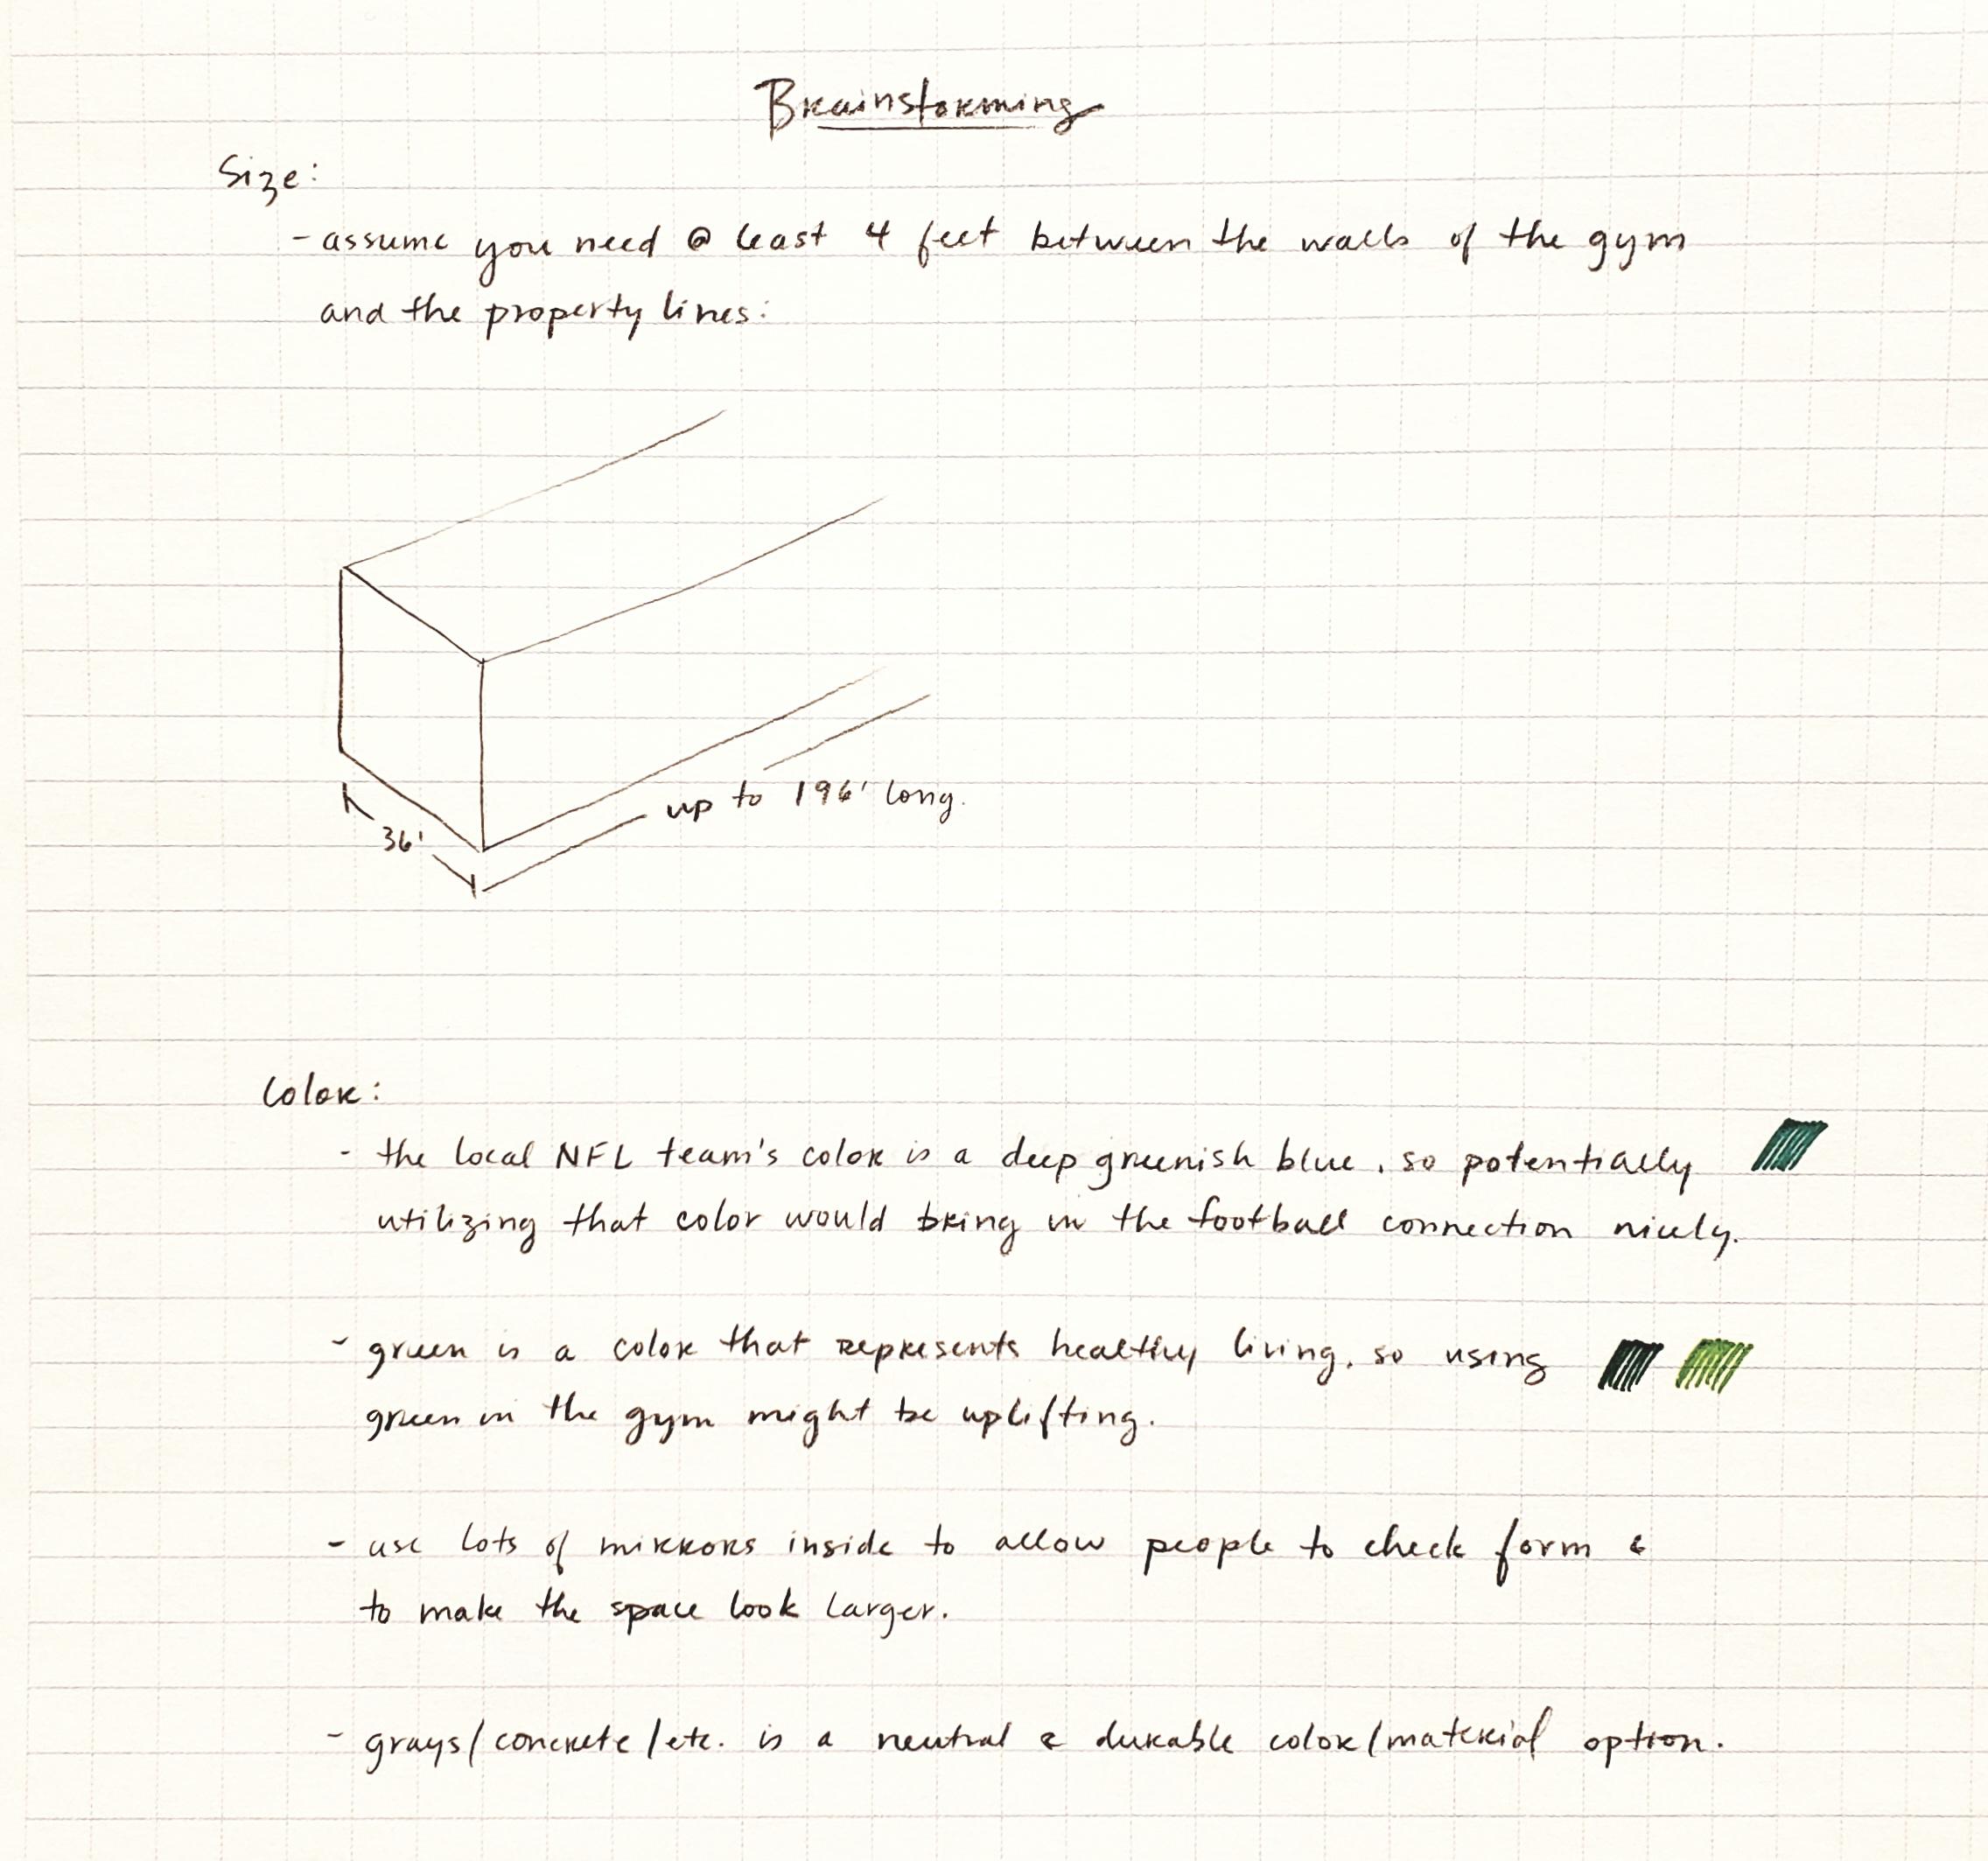 Brainstorming
Size:
- assume you need @ least 4 feet between the walls of the gym
and the property lines:
up to 196' long.
36'
Color:
- the local NFL team's color is a deep greenish blue, so potentially
utilizing that color would bring in the football connection nicely.
- green is a color that represents healthy living, so using
green in the gym might be uplifting.
- use lots of mirrors inside to allow people to check form &
to make the space look larger.
- grays/concrete/etc. is a neutral & durable color/material option.